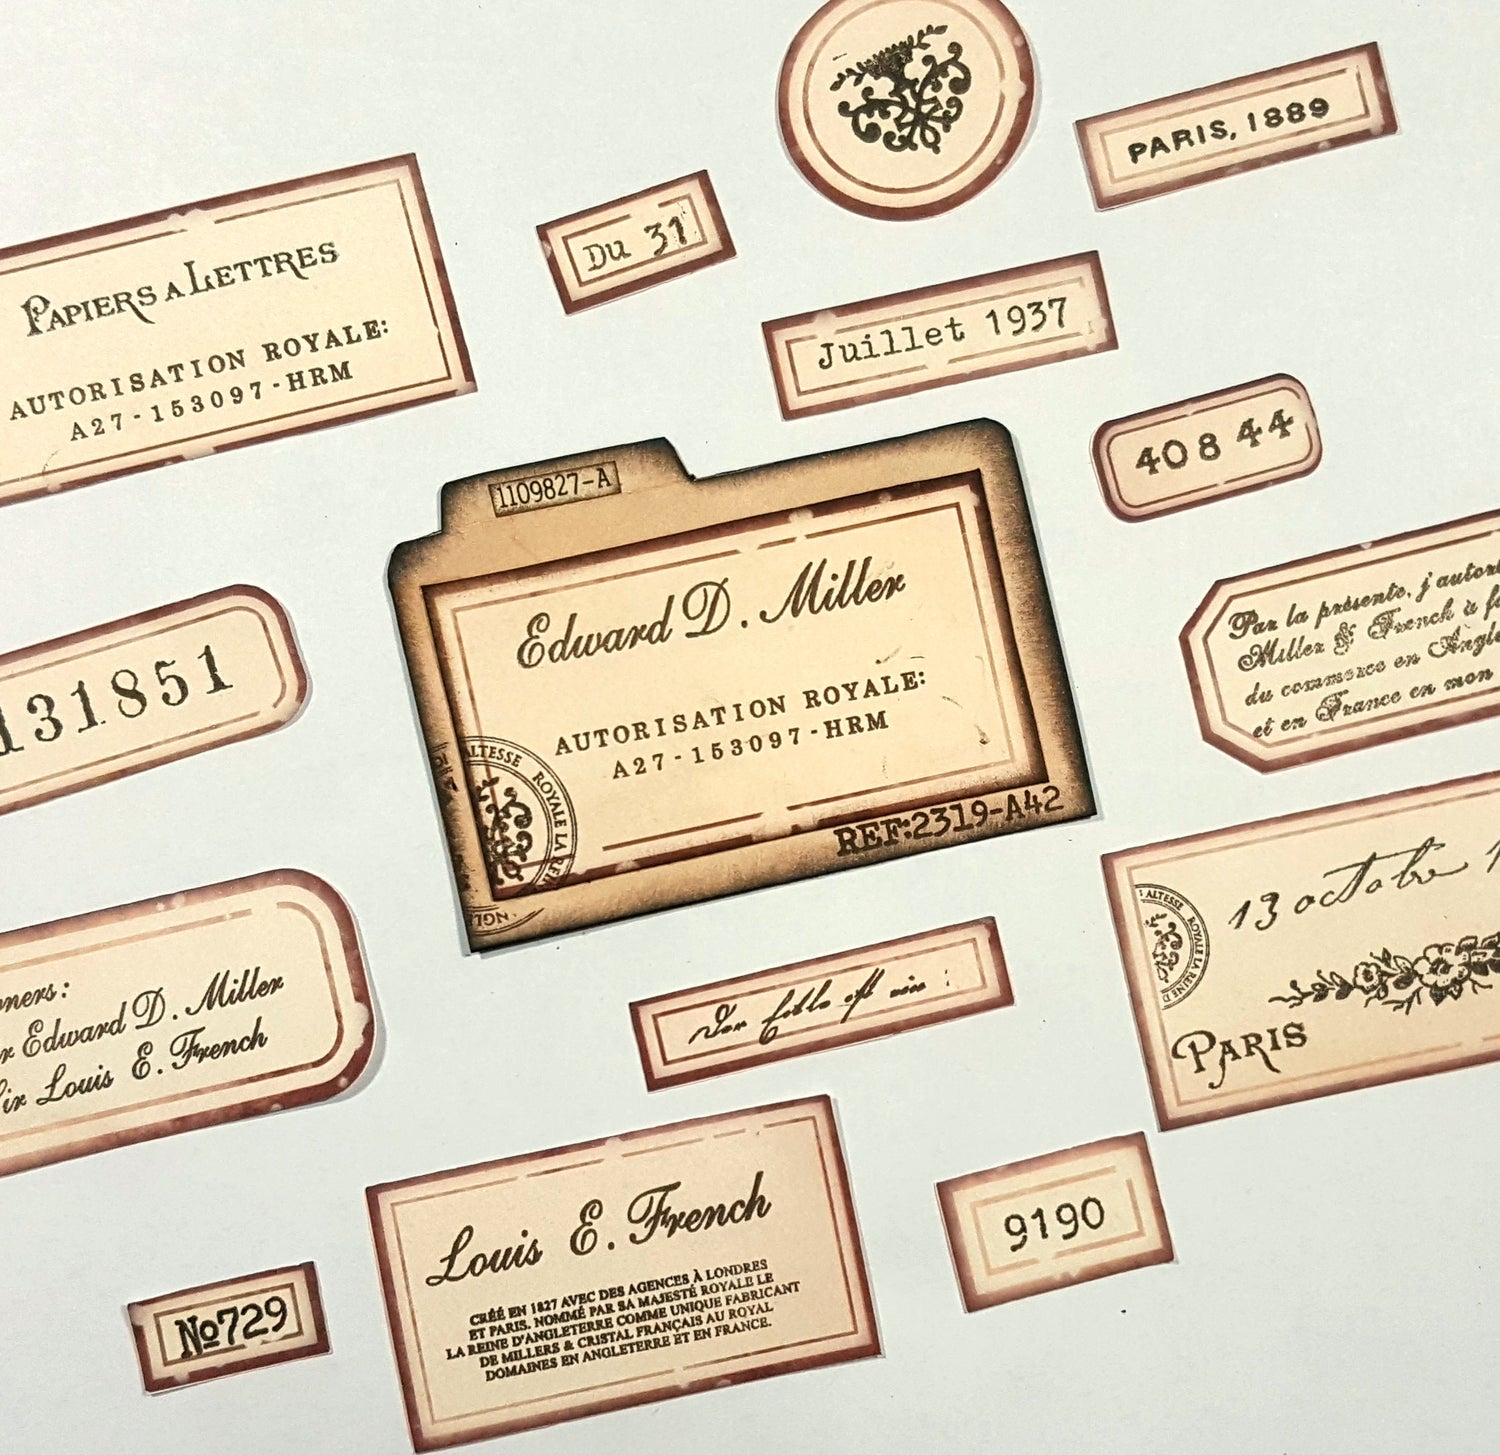 PARIS, 1889
Du 31
PAPIERS A LETTRES
AUTORISATION ROYALE:
A27-153097-HRM
Juillet 1937
408 44
1109827-A
Edward D. Miller
AUTORISATION ROYALE:
A27-153097-HRM
ALTESSE ROYALE LA REIN
REF:2319-A42
Par la présente, j'autori
Miller & French à f
du commerce en Angle
et en France en mon
131851
13 octobre 1
ALTESSE ROYALE LA REINE D
PARIS
oners:
r Edward D. Miller
ir Louis E. French
est
Louis E. French
CRÉÉ EN 1827 AVEC DES AGENCES À LONDRES
ET PARIS. NOMMÉ PAR SA MAJESTÉ ROYALE LE
LA REINE D'ANGLETERRE COMME UNIQUE FABRICANT
DE MILLERS & CRISTAL FRANÇAIS AU ROYAL
DOMAINES EN ANGLETERRE ET EN FRANCE.
9190
No729